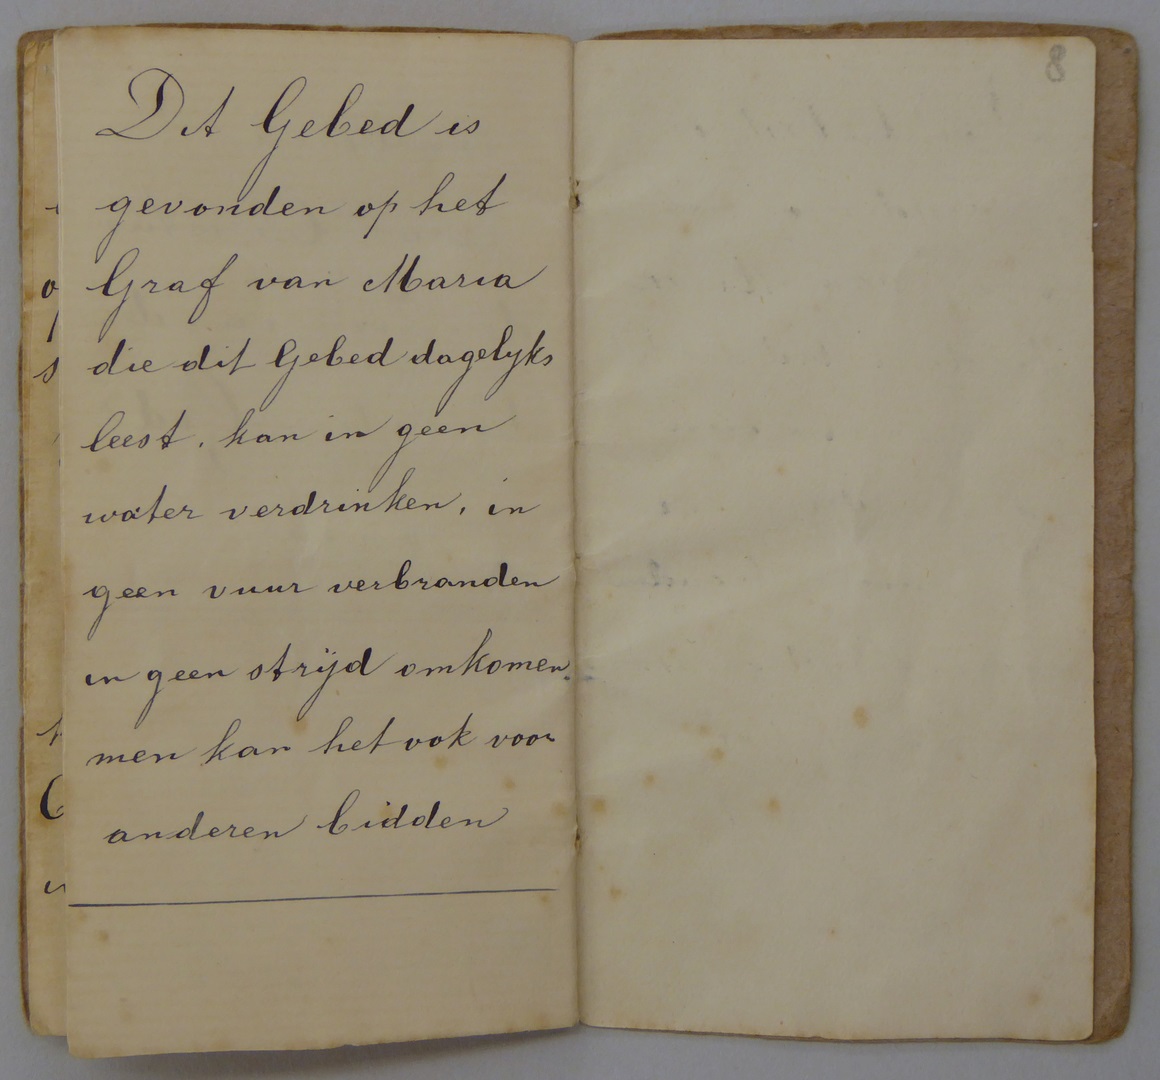 Dit Gebed is
gevonden op het
Graf van Maria
die dit Gebed dagelyks
leest, kan in geen
water verdrinken, in
geen vuur verbranden
in geen strijd omkomen.
men kan het ook voor
anderen bidden
8